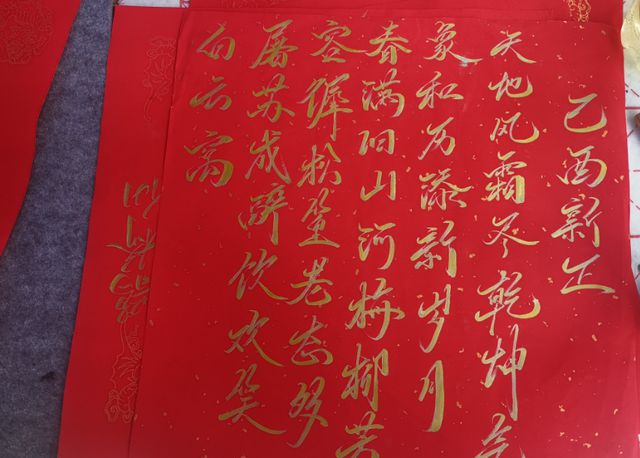 己酉新正
天地风霜尽乾坤气
象和历添新岁月
春满旧山河梅柳芳
容徲松篁老态多
屠苏成醉饮欢笑
白云窝